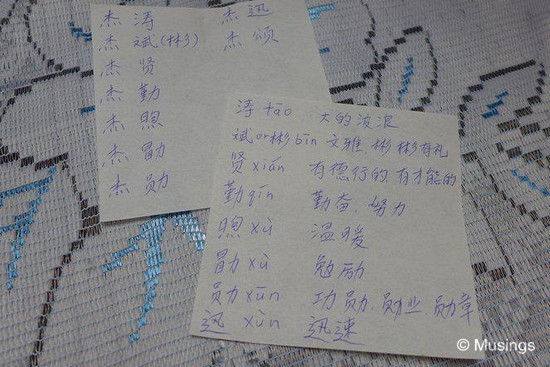 杰 涛 杰 迅
杰 斌(彬) 杰 颂
杰 贤
杰 勤
杰 煦
杰 勖
杰 勋
涛 tāo 大的波浪
斌 or 彬 bīn 文雅 彬彬有礼
贤 xián 有德行的, 有才能的
勤 qín 勤奋、努力
煦 xù 温暖
勖 xù 勉励
勋 xūn 功勋、勋业、勋章
迅 xùn 迅速
© Musings